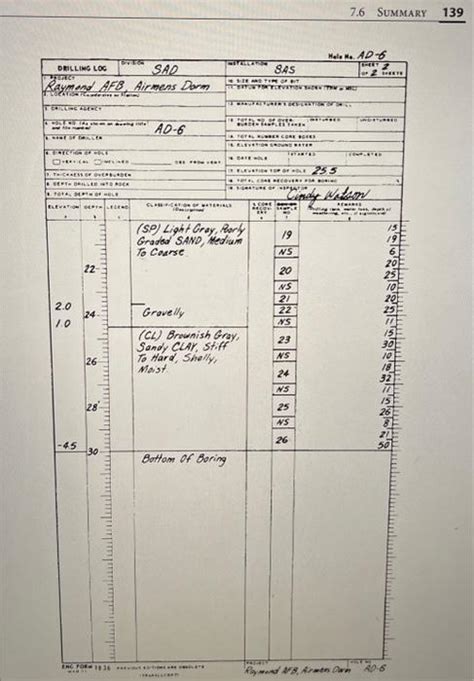 7.6 SUMMARY 139
Hole No. AD-6
DRILLING LOG
DIVISION
SAD
INSTALLATION
SAS
SHEET 2
OF 2 SHEETS
1. PROJECT
Raymond AFB, Airmens Dorm
10. SIZE AND TYPE OF BIT
11. DATUM FOR ELEVATION SHOWN (TBM or MSL)
2. LOCATION (Coordinates or Station)
12. MANUFACTURER'S DESIGNATION OF DRILL
3. DRILLING AGENCY
13. TOTAL NO. OF OVER-
BURDEN SAMPLES TAKEN
DISTURBED
UNDISTURBED
4. HOLE NO. (As shown on drawing title
and file number)
AD-6
14. TOTAL NUMBER CORE BOXES
5. NAME OF DRILLER
15. ELEVATION GROUND WATER
6. DIRECTION OF HOLE
VERTICAL INCLINED DEG. FROM VERT.
16. DATE HOLE
STARTED
COMPLETED
17. ELEVATION TOP OF HOLE 25.5
7. THICKNESS OF OVERBURDEN
18. TOTAL CORE RECOVERY FOR BORING
8. DEPTH DRILLED INTO ROCK
19. SIGNATURE OF INSPECTOR
Cindy Watson
9. TOTAL DEPTH OF HOLE
ELEVATION DEPTH LEGEND
CLASSIFICATION OF MATERIALS
(Description)
% CORE
RECOV-
ERY
SAMPLE
NO.
REMARKS
(SP) Light Gray, Poorly
Graded SAND, Medium
To Coarse
19
15
19
NS
6
22
20
20
25
NS
10
21
20
2.0
24
Gravelly
22
25
1.0
NS
11
(CL) Brownish Gray,
Sandy CLAY, Stiff
To Hard, Shelly,
Moist.
23
15
30
26
NS
10
24
18
32
NS
11
28
25
15
26
NS
8
26
21
-4.5
30
50
Bottom Of Boring
ENG FORM 1836 PREVIOUS EDITIONS ARE OBSOLETE
(TRANSLUCENT)
PROJECT
Raymond AFB, Airmens Dorm
HOLE NO.
AD-6